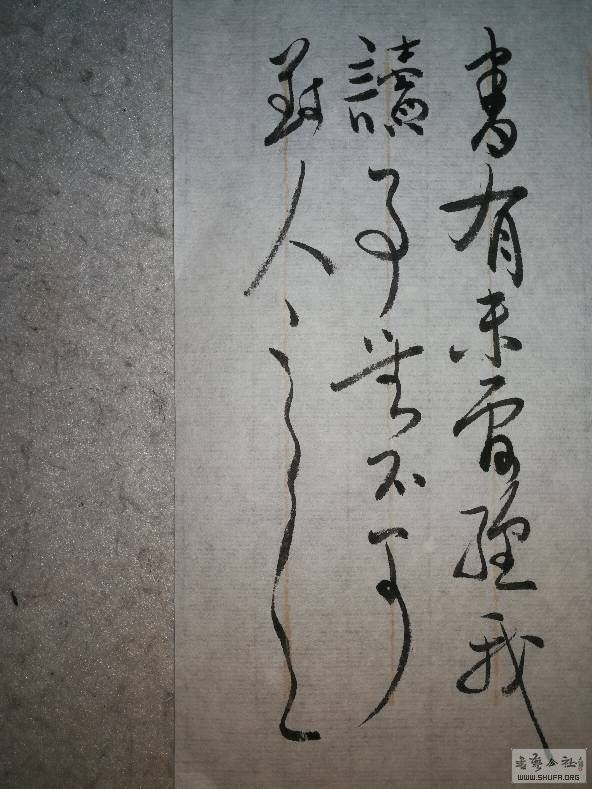 書有未曾經我
讀事無不可
對人言
书艺公社
WWW.SHUFA.ORG